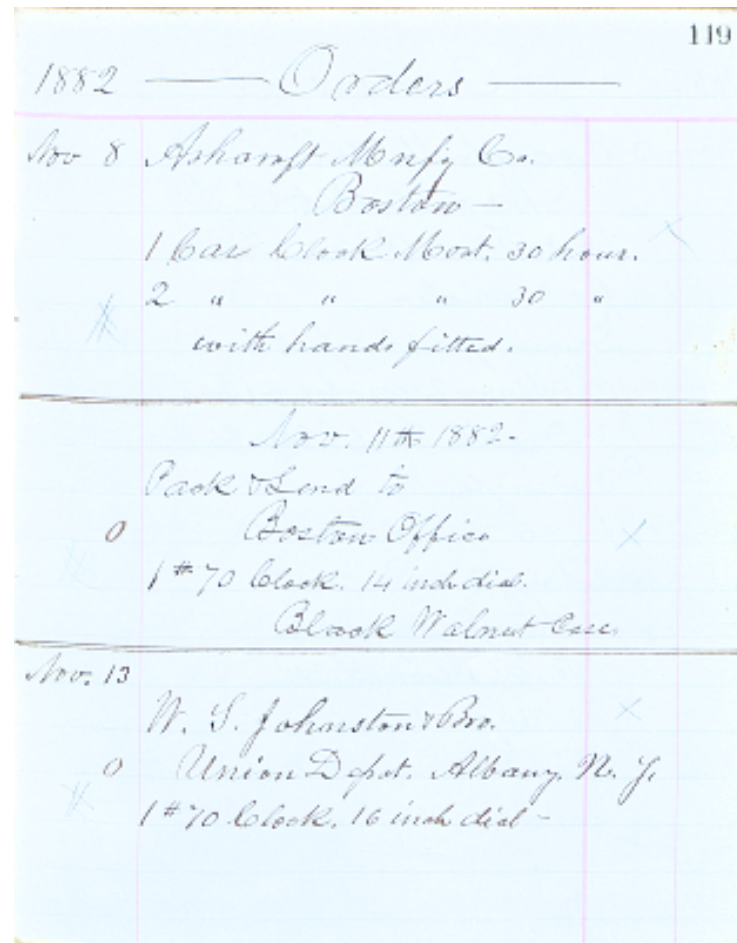 119
1882 — Orders —
Nov 8 Ashcroft Mnfg Co.
Boston —
1 Car Clock Movt. 30 hour.
2 " " " 30 "
with hands fitted.
Nov. 11th 1882.
Pack & Send to
0 Boston Office
1 #70 Clock. 14 inch dial.
Black Walnut Case
Nov. 13
W. S. Johnston & Bro.
0 Union Depot. Albany. N. Y.
1 #70 Clock. 16 inch dial —